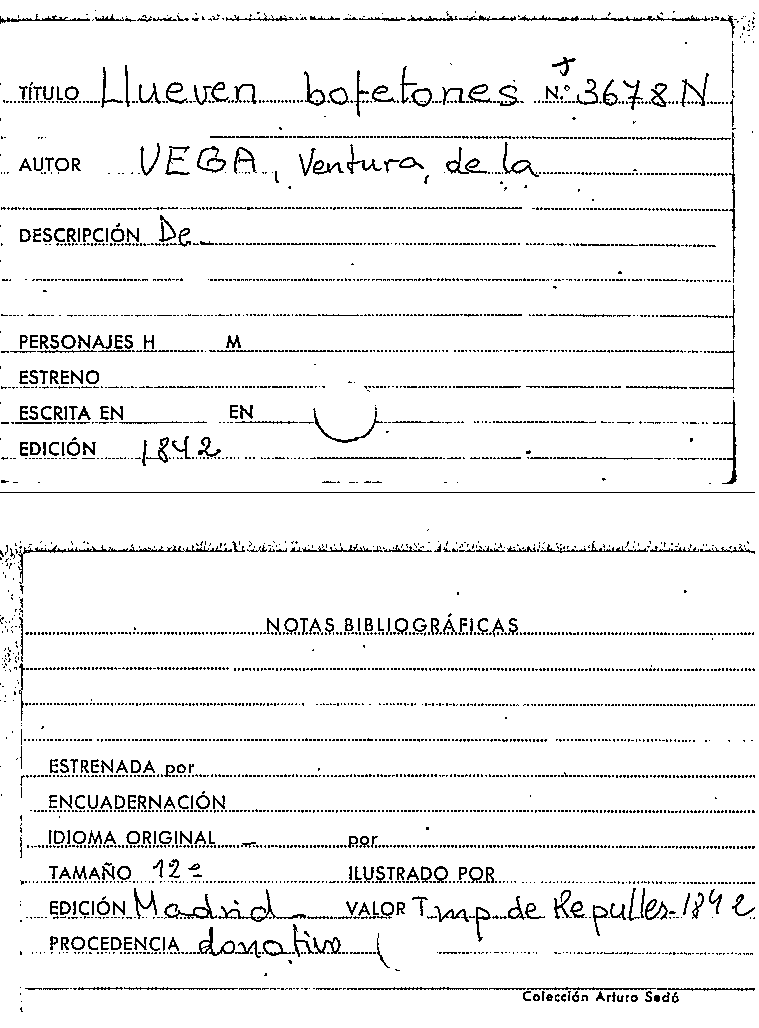 TÍTULO Llueven bofetones N.º 3678 N
AUTOR VEGA, Ventura, de la
DESCRIPCIÓN De
PERSONAJES H M
ESTRENO
ESCRITA EN EN
EDICIÓN 1842
NOTAS BIBLIOGRÁFICAS
ESTRENADA por
ENCUADERNACIÓN
IDIOMA ORIGINAL – por
TAMAÑO 12º ILUSTRADO POR
EDICIÓN Madrid – VALOR Imp de Repulles-1842
PROCEDENCIA donativo
Colección Arturo Sedó